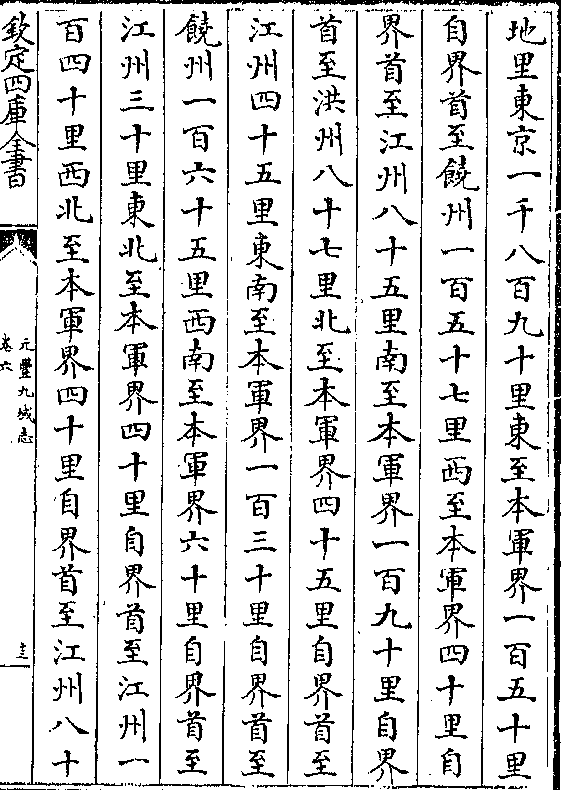 地里東京一千八百九十里東至本軍界一百五十里
自界首至饒州一百五十七里西至本軍界四十里自
界首至江州八十五里南至本軍界一百九十里自界
首至洪州八十七里北至本軍界四十五里自界首至
江州四十五里東南至本軍界一百三十里自界首至
饒州一百六十五里西南至本軍界六十里自界首至
江州三十里東北至本軍界四十里自界首至江州一
百四十里西北至本軍界四十里自界首至江州八十
欽定四庫全書
元豐九域志
卷六